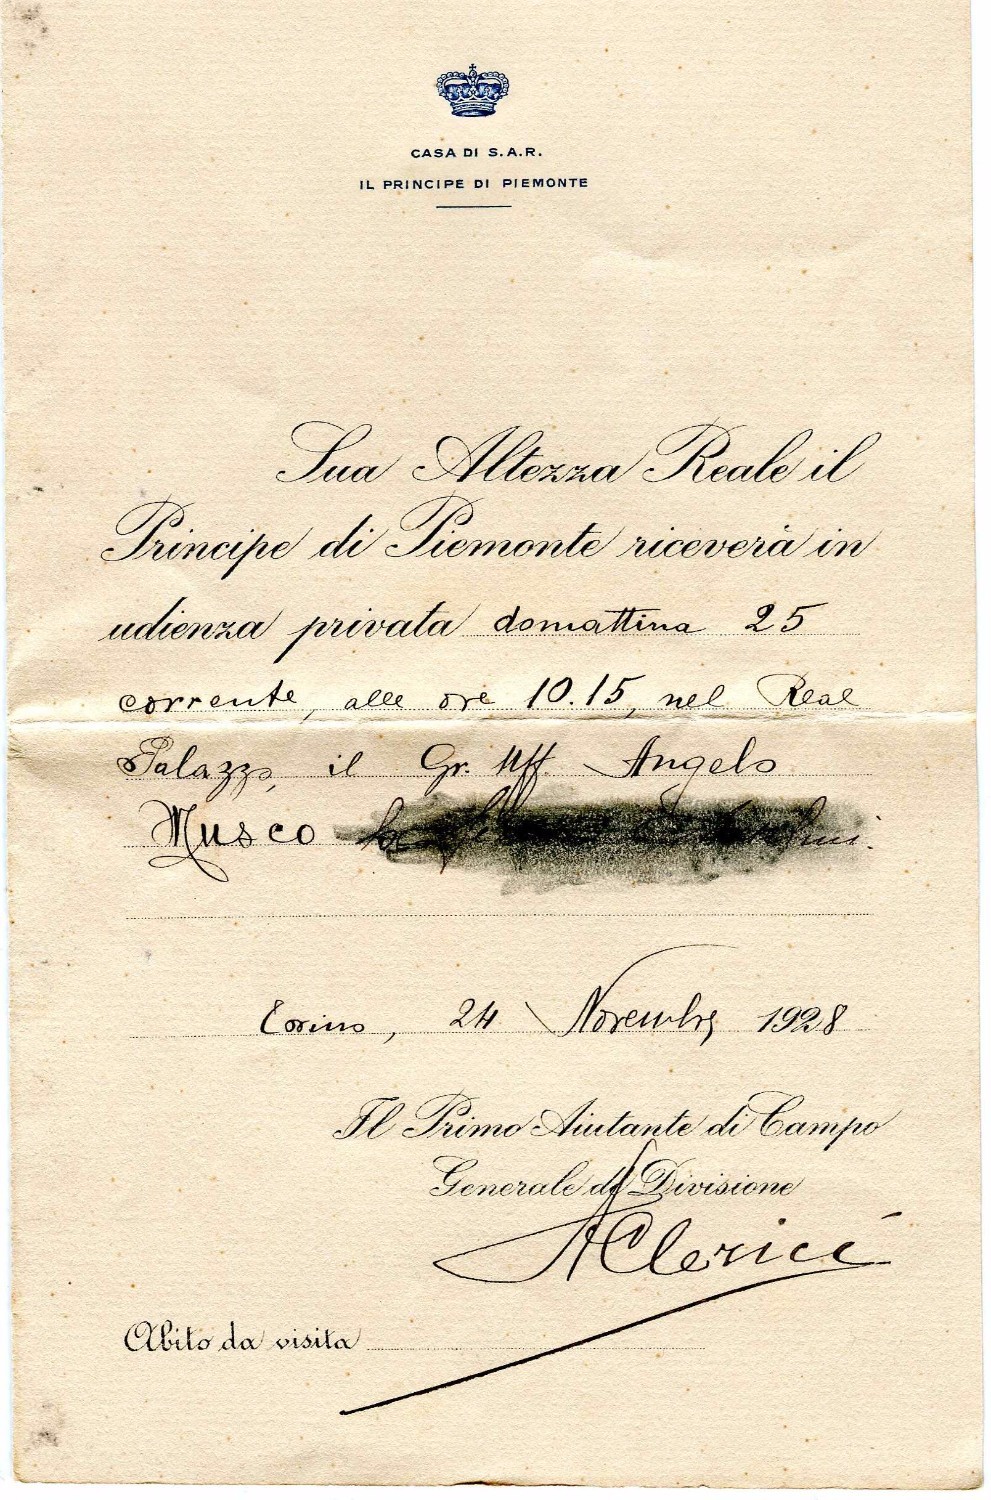 CASA DI S.A.R.
IL PRINCIPE DI PIEMONTE
Sua Altezza Reale il
Principe di Piemonte riceverà in
udienza privata domattina 25
corrente, alle ore 10.15, nel Real
Palazzo, il Gr. Uff. Angelo
Musco
Torino, 24 Novembre 1928
Il Primo Aiutante di Campo
Generale di Divisione
A Clerici
Abito da visita